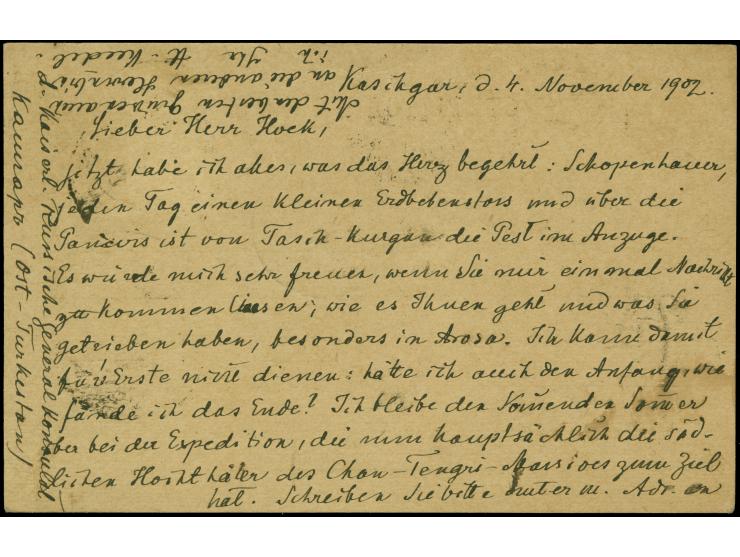 Kaschgar, d. 4. November 1902.
Lieber Herr Hoek,
Jetzt habe ich alles, was das Herz begehrt: Schopenhauer,
jeden Tag einen kleinen Erdbebenstoss und über die
Pamirs ist von Tasch-Kurgan die Pest im Anzuge.
Es würde mich sehr freuen, wenn Sie mir einmal Nachricht
zu kommen liessen, wie es Ihnen geht und was Sie
getrieben haben, besonders in Arosa. Ich kann damit
für's Erste nicht dienen: hätte ich auch den Anfang, wie
fände ich das Ende? Ich bleibe den kommenden Sommer
über bei der Expedition, die nun hauptsächlich die süd-
lichen Hochthäler des Chan-Tengri-Massives zum Ziel
hat. Schreiben Sie bitte unter m. Adr. an
d. Kaiserl. Russische Generalkonsulat
Кашгаръ (Ost-Turkestan)
Mit den besten Grüssen auch
an die anderen Herrn bin
ich Ihr H. Keidel.